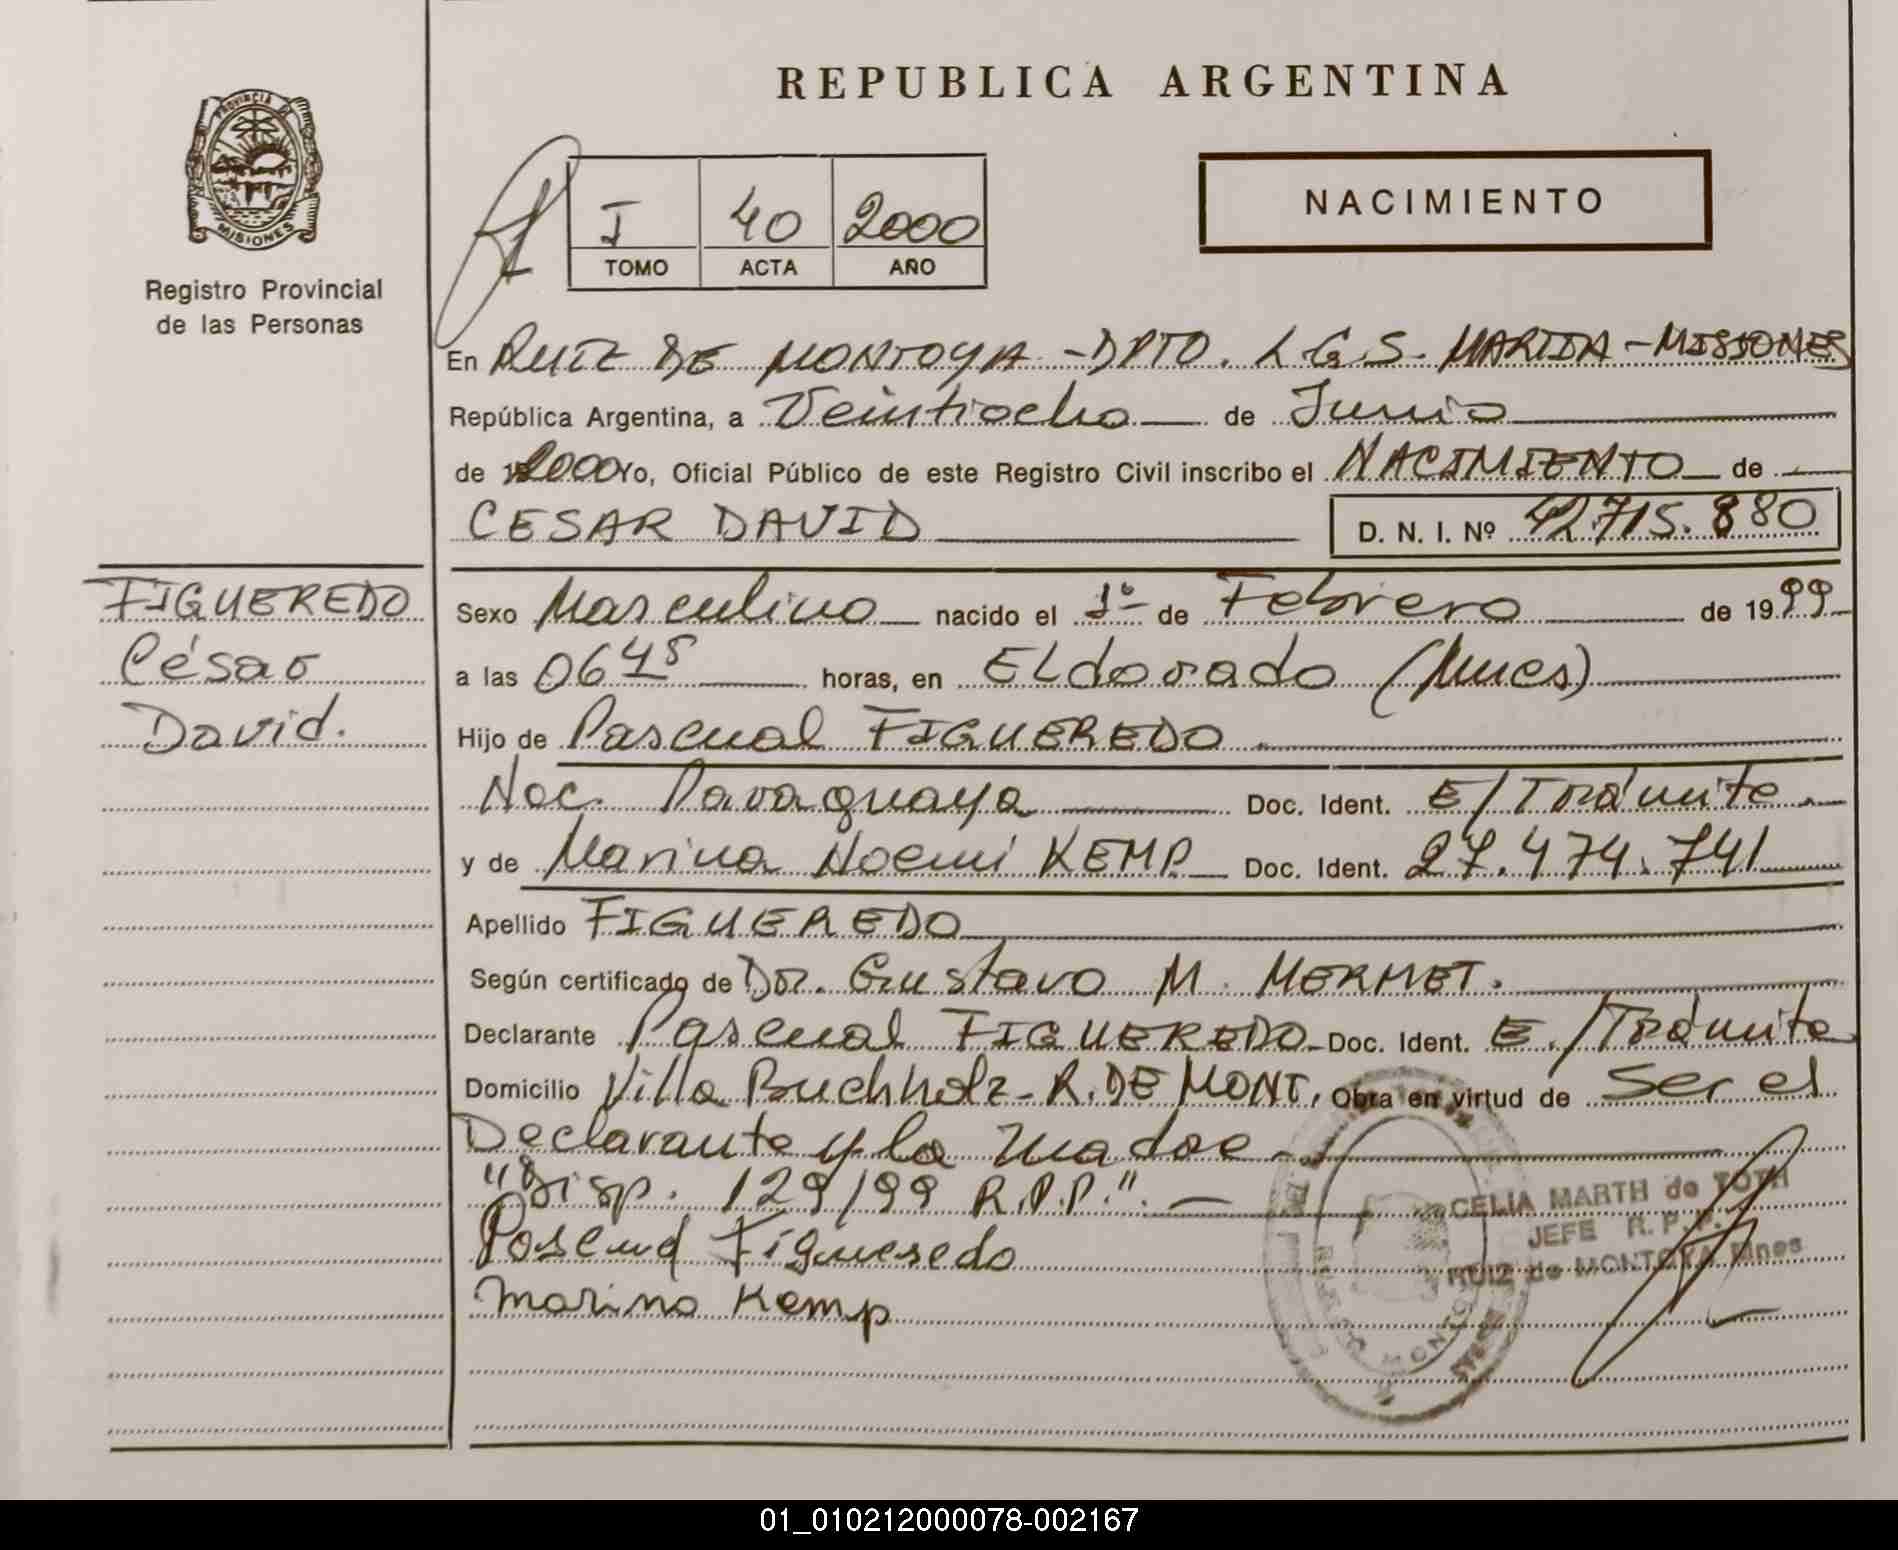 REPUBLICA ARGENTINA
PROVINCIA DE
MISIONES
Registro Provincial
de las Personas
NACIMIENTO
I 40 2000
TOMO ACTA AÑO
En RUIZ DE MONTOYA - DPTO. L.G.S. MARTIN - MISIONES
República Argentina, a Veintiocho de Junio
de 2000 Yo, Oficial Público de este Registro Civil inscribo el NACIMIENTO de
CESAR DAVID D. N. I. Nº 42.715.880
FIGUEREDO
César
David.
Sexo Masculino nacido el 1º de Febrero de 1999
a las 0645 horas, en ELdorado (Mnes)
Hijo de Pascual FIGUEREDO
Nac. Paraguaya Doc. Ident. E/Trámite.
y de Marina Noemi KEMP. Doc. Ident. 27.474.741
Apellido FIGUEREDO
Según certificado de Dr. Gustavo M. MERMET.
Declarante Pascual FIGUEREDO Doc. Ident. E./Trámite
Domicilio Villa Buchholz - R. DE MONT, Obra en virtud de Ser el
Declarante y la Madre
"Disp. 129/99 R.P.P.".
Pascual Figueredo
Marina Kemp
CELIA MARTH de TOTH
JEFE R.P.P.
RUIZ de MONTOYA Mnes
01_010212000078-002167